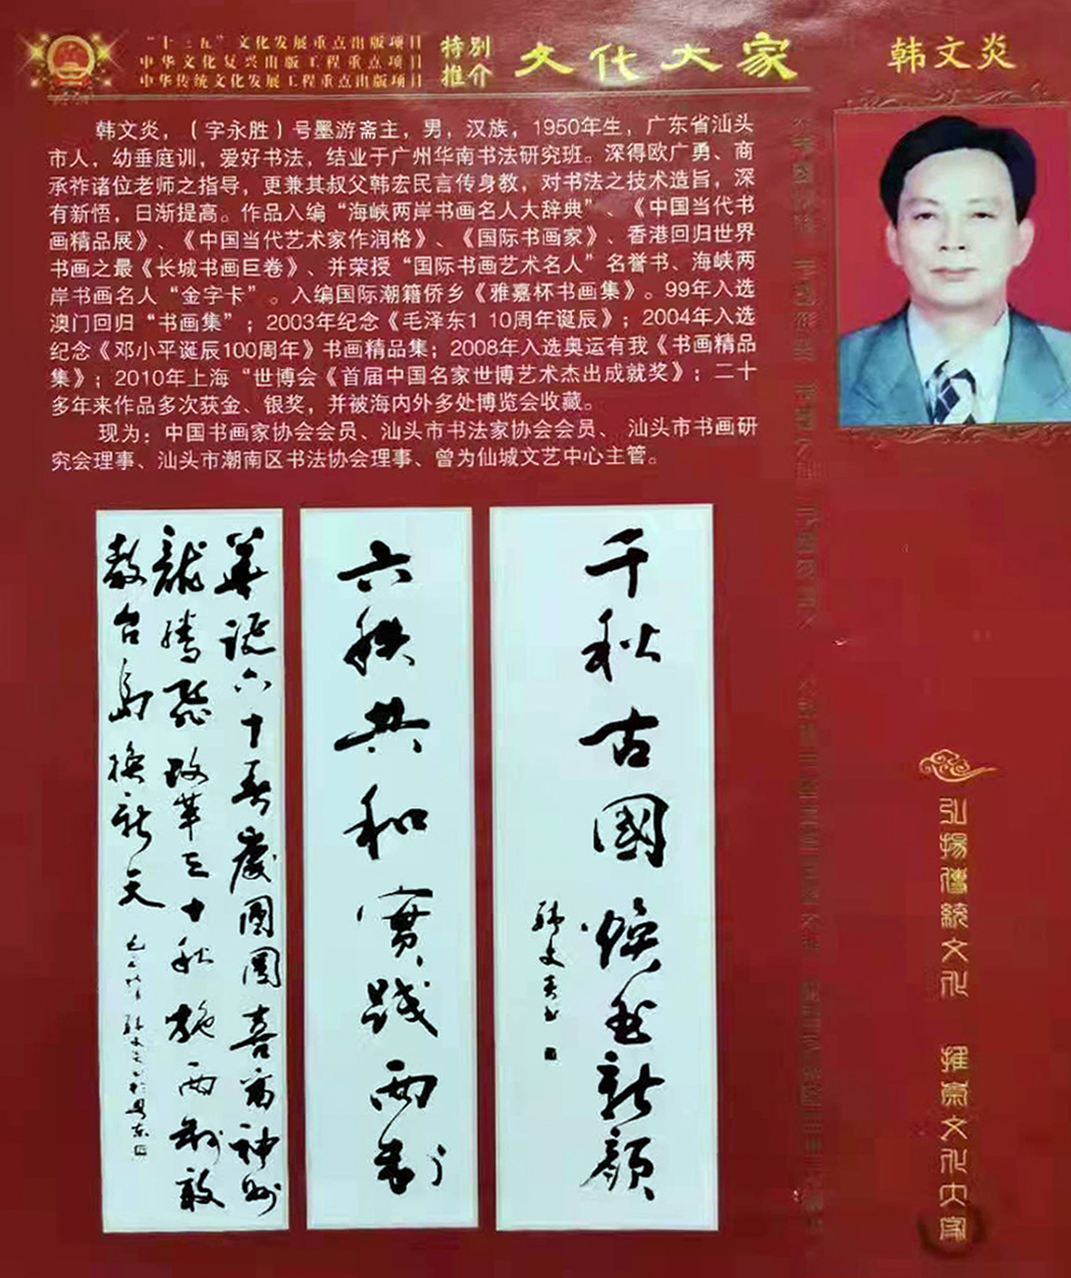 “十三五”文化发展重点出版项目
中华文化复兴出版工程重点项目
中华传统文化发展工程重点出版项目
特别
推介
文化大家
韩文炎
韩文炎，（字永胜）号墨游斋主，男，汉族，1950年生，广东省汕头
市人，幼垂庭训，爱好书法，结业于广州华南书法研究班。深得欧广勇、商
承祚诸位老师之指导，更兼其叔父韩宏民言传身教，对书法之技术造旨，深
有新悟，日渐提高。作品入编“海峡两岸书画名人大辞典”、《中国当代书
画精品展》、《中国当代艺术家作润格》、《国际书画家》、香港回归世界
书画之最《长城书画巨卷》、并荣授“国际书画艺术名人”名誉书、海峡两
岸书画名人“金字卡”。入编国际潮籍侨乡《雅嘉杯书画集》。99年入选
澳门回归“书画集”；2003年纪念《毛泽东1 10周年诞辰》；2004年入选
纪念《邓小平诞辰100周年》书画精品集；2008年入选奥运有我《书画精品
集》；2010年上海“世博会《首届中国名家世博艺术杰出成就奖》；二十
多年来作品多次获金、银奖，并被海内外多处博览会收藏。
现为：中国书画家协会会员、汕头市书法家协会会员、 汕头市书画研
究会理事、汕头市潮南区书法协会理事、曾为仙城文艺中心主管。
千秋古國焕新顔
韩文炎书
六秩共和實践两制
華诞六十春慶國圆喜留神州
龍腾改革三十秋施两制敢
教台島换新天
韩文炎书於粤东
弘揚傳統文化 推崇文化大家